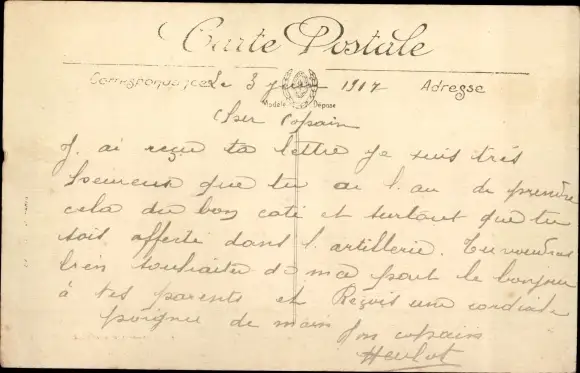 Carte Postale
Correspondance Le 3 1917 Adresse
Modèle Déposé
Cher Copain
J. ai reçu ta lettre je suis très
heureux que tu ai l. air de prendre
cela du bon coté et surtout que tu
soit affecté dans l. artillerie. Tu voudras
bien souhaiter de ma part le bonjour
à tes parents et Reçois une cordiale
poignée de main Ton copain